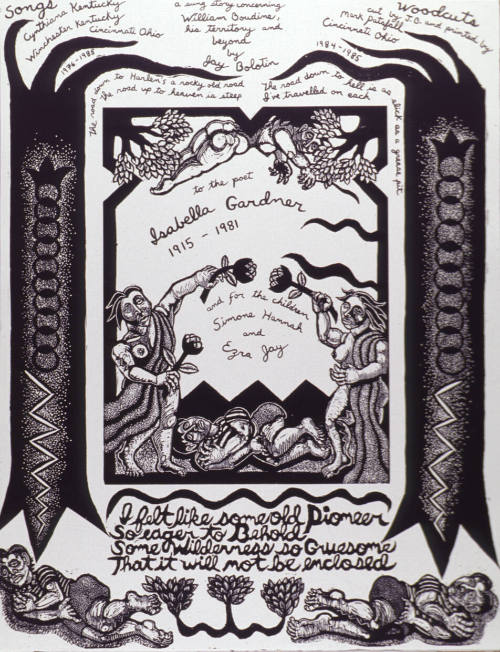 Songs
Cynthiana Kentucky
Winchester Kentucky
Cincinnati Ohio
1976-1985
a sung story concerning
William Boudine,
his territory and
beyond
by
Jay Bolotin
Woodcuts
cut by J.B. and printed by
Mark Patsfall
Cincinnati Ohio
1984-1985
the road down to Harlan's a rocky old road
the road up to heaven is steep
The road down to hell is as slick as a grease pit
I've travelled on each
to the poet
Isabella Gardner
1915 - 1981
and for the children
Simone Hannah
and
Ezra Jay
I felt like some old Pioneer
So eager to Behold
Some Wilderness so Gruesome
That it will not be enclosed